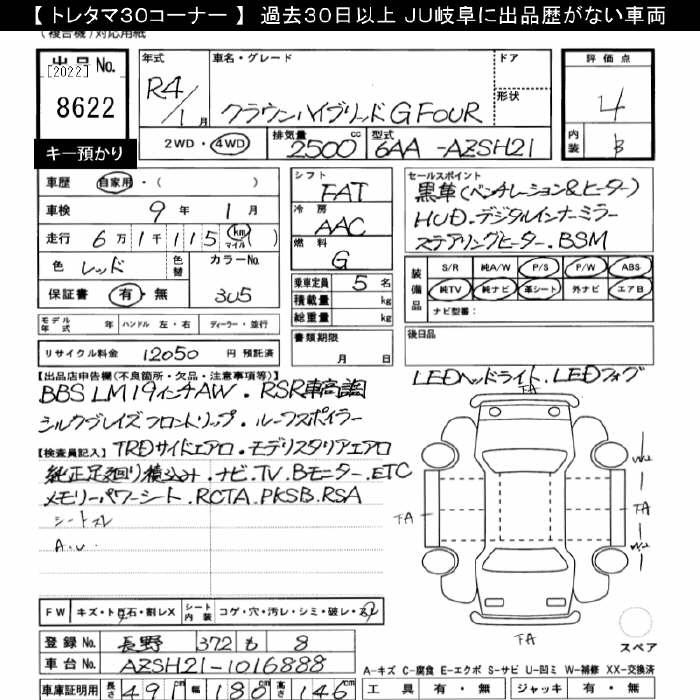 【トレタマ30コーナー】 過去30日以上 JU岐阜に出品歴がない車両
(複合機)対応用紙
出品 No. 年式 車名・グレード ドア 評価点
[2022] R4/1月 クラウンハイブリッド G FOUR 形状 4
8622
2WD・4WD 排気量 2500 cc 型式 6AA-AZSH21 内装 B
キー預かり
車歴 自家用・( ) シフト FAT セールスポイント
黒革(ベンチレーション&ヒーター)
車検 9年 1月 冷房 AAC HUD.デジタルインナーミラー
走行 6万1千115 km マイル ( ) 燃料 G ステアリングヒーター.BSM
色 レッド 色替 カラーNo. 3U5 乗車定員 5名
装備品 S/R 純A/W P/S P/W ABS
保証書 有・無 積載量 kg 純TV 純ナビ 革シート 外ナビ エアB
総重量 kg ナビ型番:
モデル年式 年 ハンドル 左・右 ディーラー・並行 書類期限 月 日 後日品
リサイクル料金 12050 円 預託済
【出品店申告欄(不良箇所・欠品・注意事項等)】
BBS LM 19インチAW.RSR車高調 LEDヘッドライト.LEDフォグ
シルクブレイズフロントリップ.ルーフスポイラー
【検査員記入】 TRDサイドエアロ.モデリスタリアエアロ
純正足廻り積込み.ナビ.TV.Bモニター.ETC
メモリーパワーシート.RCTA.PKSB.RSA
シートスレ
A.U.
FW キズ・トビ石・割レX シート内装 コゲ・穴・汚レ・シミ・破レ・スレ
登録 No. 長野 372 も 8
スペア
車台 No. AZSH21-1016888
A-キズ C-腐食 E-エクボ S-サビ U-凹ミ W-補修 XX-交換済
車庫証明用 長さ 491 幅 180 高さ 146 工具 有・無 ジャッキ 有・無